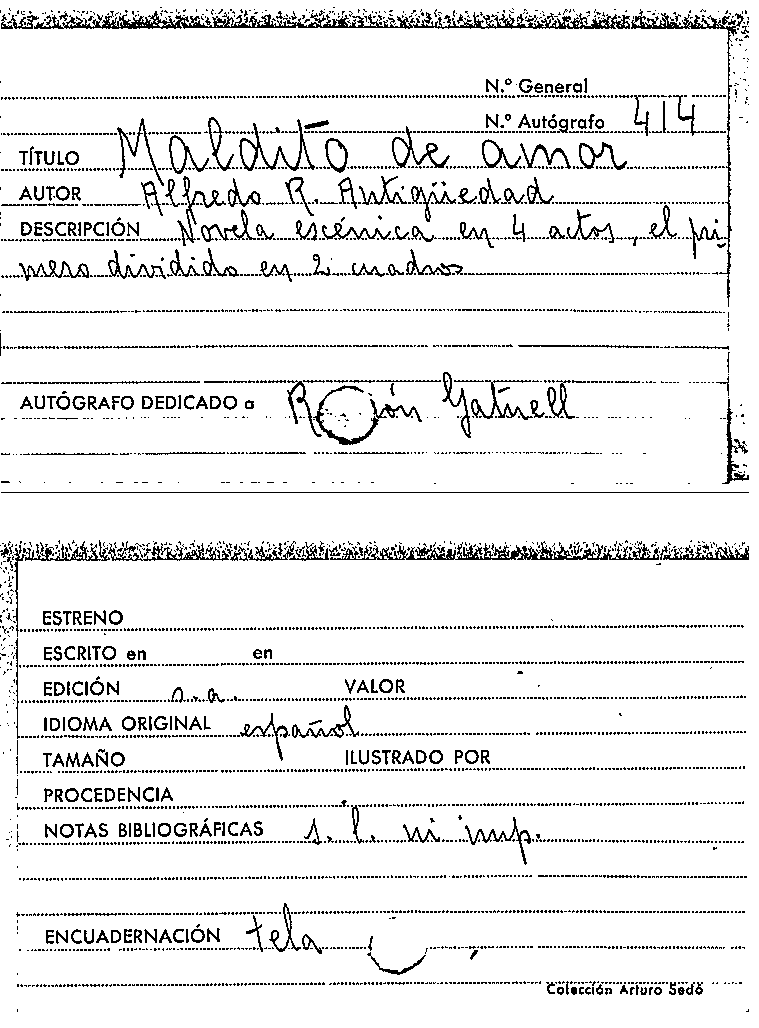 N.º General
N.º Autógrafo 414
TÍTULO Maldito de amor
AUTOR Alfredo R. Antigüedad
DESCRIPCIÓN Novela escénica en 4 actos, el pri-
mero dividido en 2 cuadros
AUTÓGRAFO DEDICADO a Gatuell
ESTRENO
ESCRITO en en
EDICIÓN s.a. VALOR
IDIOMA ORIGINAL español
TAMAÑO ILUSTRADO POR
PROCEDENCIA
NOTAS BIBLIOGRÁFICAS s. l. ni imp.
ENCUADERNACIÓN tela
Colección Arturo Sedó